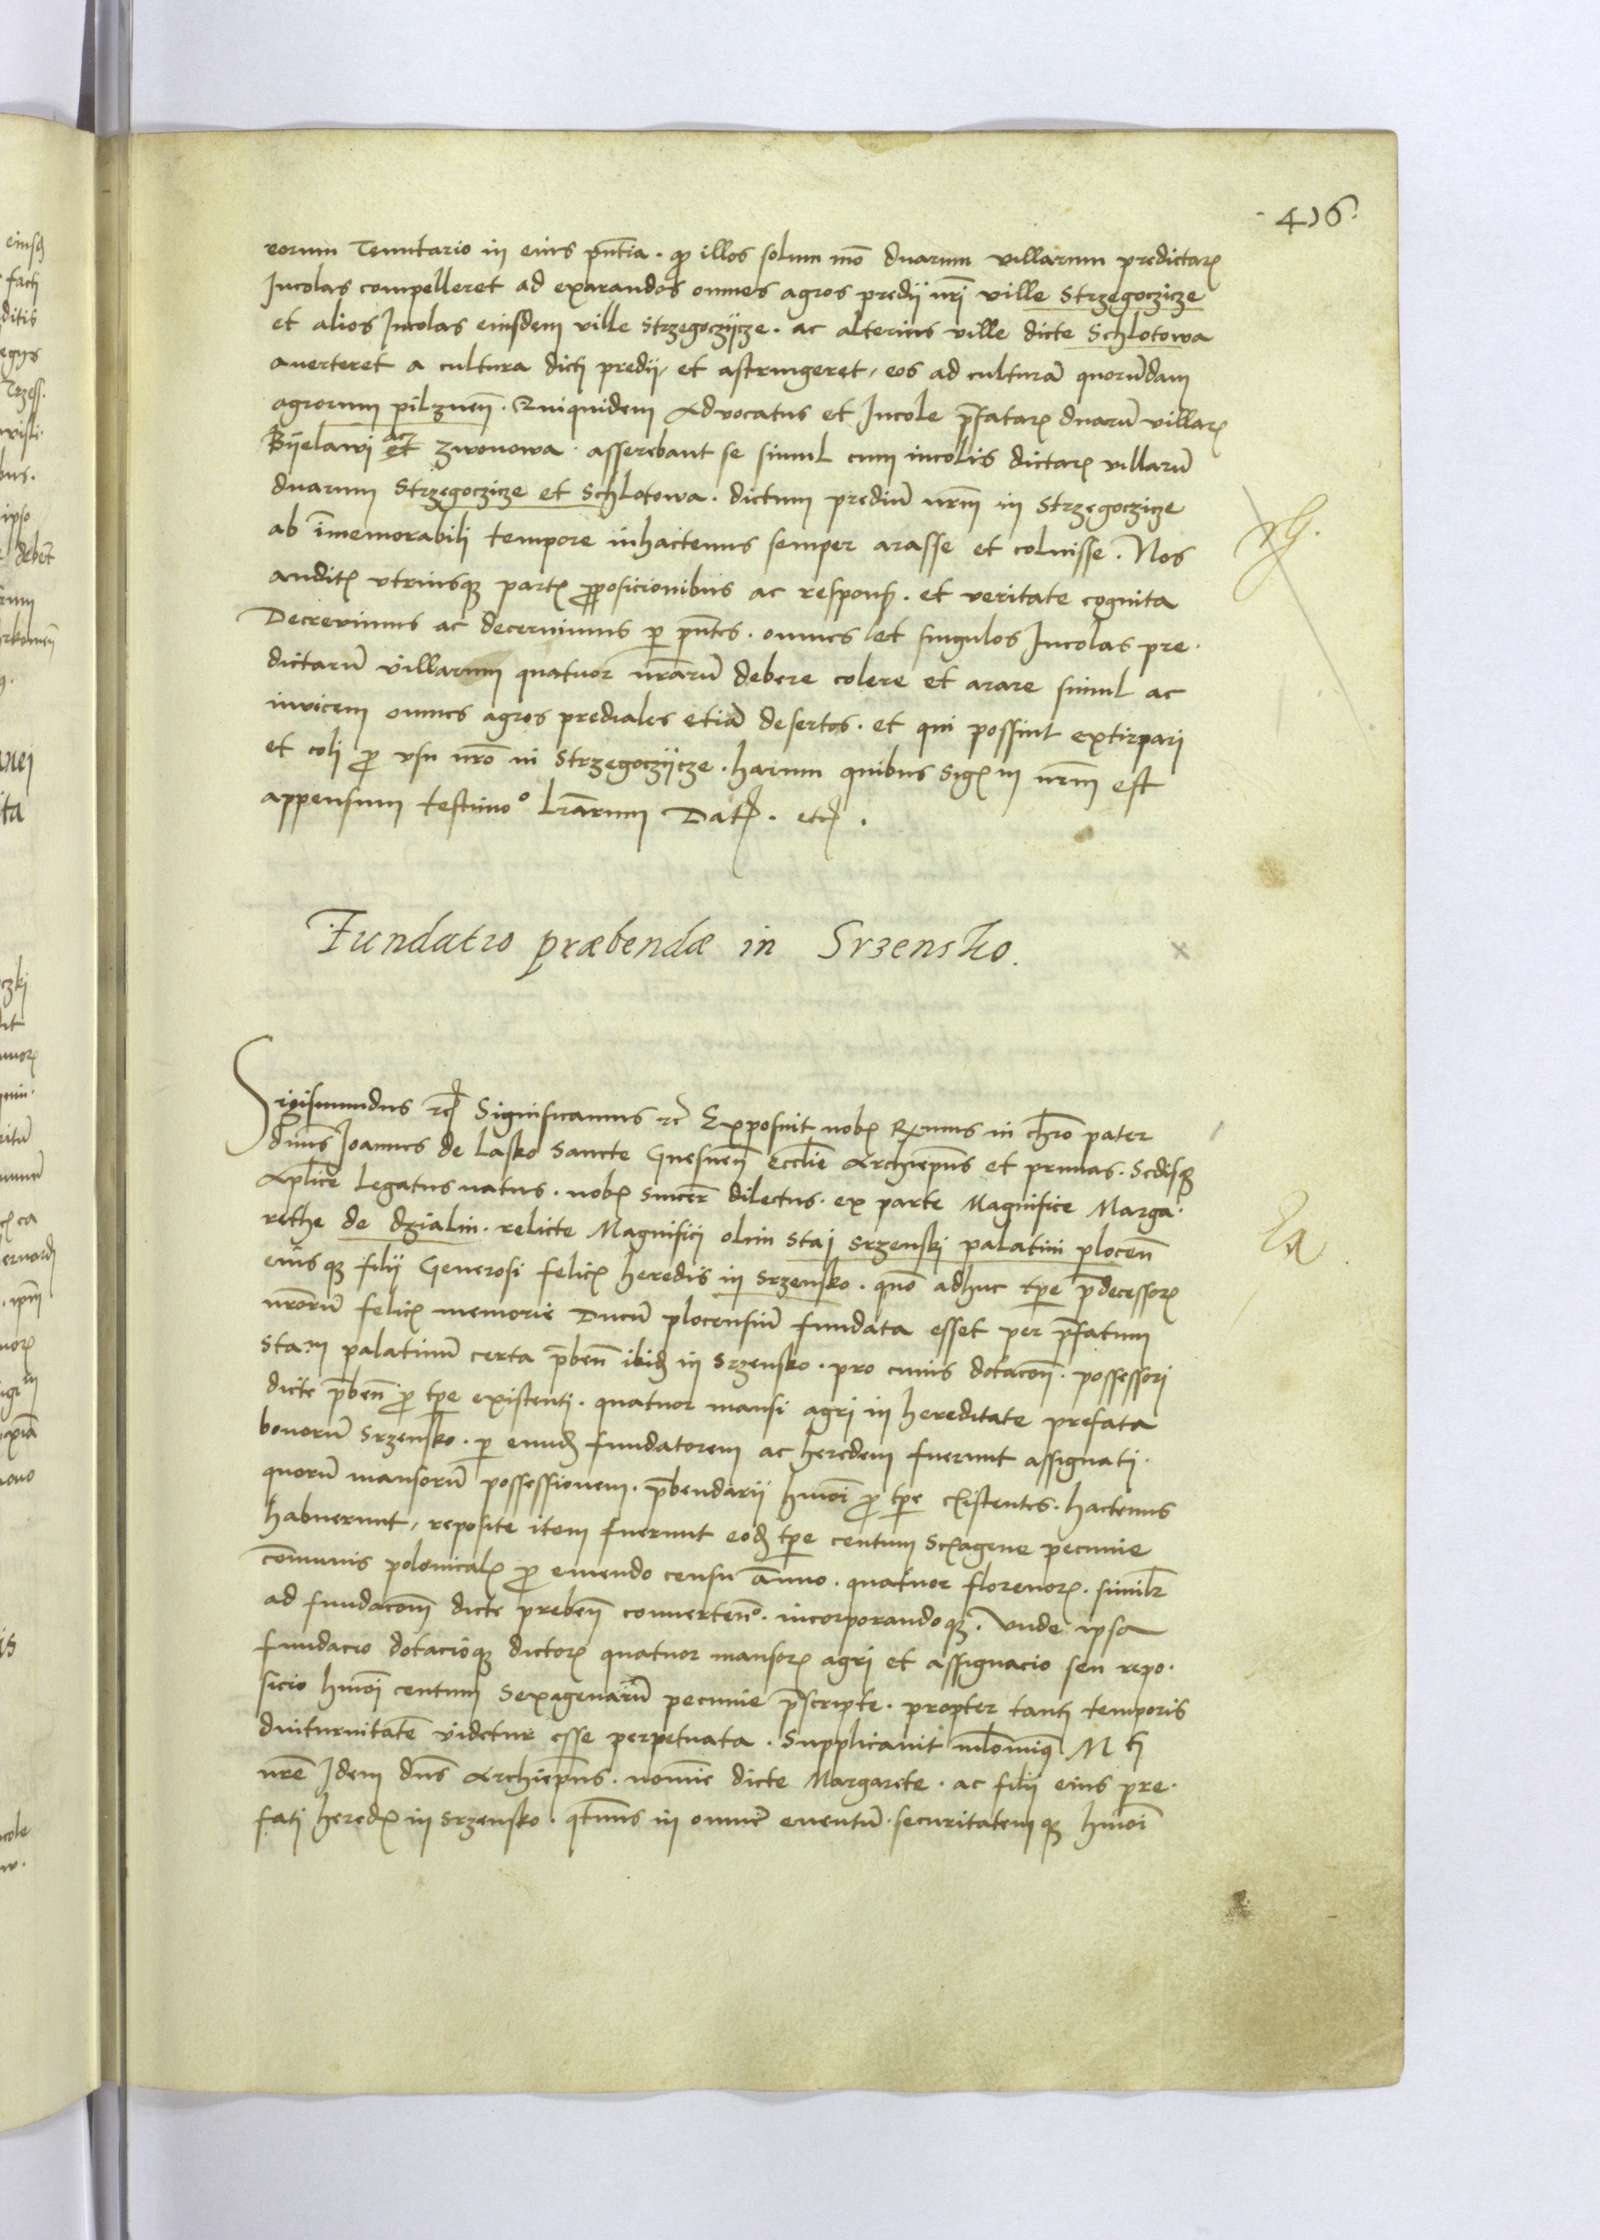 416
eorum Tenutario in eius pntia. qd illos solum mo duarum villarum predictar
Incolas compelleret ad exarandos omnes agros predij nri ville Strzegoczicze
et alios Incolas eiusdem ville Strzegoczijcze. ac alterius ville dicte Schlotowa
auerteret a cultura dicti predij, et astringeret, eos ad culturā quorūdam
agrorum pilznen. Quiquidem Advocatus et Incole pfatar duarū villar
Bijelawi ac et Zwonowa. asserebant se simul cum incolis dictar villarū
duarum Strzegoczicze et Schlotowa. dictum prediū nrm in Strzegoczicze
ab īmemorabili tempore inhactenus semper arasse et coluisse. Nos
audit vtriusq part proposicionibus ac respons. et veritate cognita
Decrevimus ac decernimus p pntes. omnes et singulos Incolas pre
dictarū villarum quatuor nrarū debere colere et arare simul ac
invicem omnes agros prediales etiā desertos. et qui possint extirpari
et coli p vsu nro in Strzegoczijcze. harum quibus Sig m nrm est
appensum testimo° lrarum Dat. etc.
Fundatio præbendæ in Srzensko.
Sigismundus rc Significamus rc Exposuit nob Rmus in chro pater
dnus Joannes de Lasko Sancte Gnesnen Ecclie Archiepus et primas. Sedisq
Aplice Legatus natus. nob sincer dilectus. ex parte Magnifice Marga
rethe de dzialin. relicte Magnifici olim Stai Srzenski palatini plocen
eiusq filii Generosi felic heredis in Srzensko. quo adhuc tpe pdecessor
nrorū felic memorie Ducū plocensiū fundata esset per pfatum
Sta m palatinū certa pben ibid in Srzensko. pro cuius dotacon. possessori
dicte pben p tpe existenti. quatuor mansi agri in hereditate prefata
bonorū Srzensko. p eund fundatorem ac heredem fuerunt assignati.
quorū mansorū possessionem. pbendarii hmoi p tpe existentes. hactenus
habuerunt, reposite item fuerunt eod tpe centum Sexagene pecunie
cōmunis polonical p emendo censu ānuo. quatuor florenor. similr
ad fundacom dicte preben conuerten°. incorporandoq. Vnde ipsa
fundacio dotacioq dictor quatuor mansor agri et assignacio seu repo
sicio hmoi centum Sexagenarū pecunie pscripte. propter tanti temporis
diuturnitatē videtur esse perpetuata. Supplicauit M ti
nre Idem dns Archiepus. nomine dicte Margarete. ac filii eius pre
fati hered in Srzensko. qtnus in omnē euentū. securitatemq hmoi